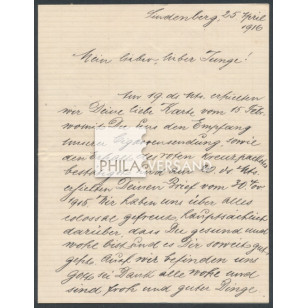 Lindenberg, 25 April
1916
Mein lieber, lieber Junge!
Am 19 ds. Mts. erhielten
wir Deine liebe Karte vom 15 Feb.
womit Du uns den Empfang
unserer
sowie
den
PHILA VERSAND
erhielten Deinen Brief vom 30
1915. Wir haben uns über alles
colossal gefreut, hauptsächlich
darüber, dass Du gesund und
wohl bist und es Dir soweit gut
geht. Auch wir befinden uns
Gott sei Dank alle wohl und
sind froh und guter Dinge